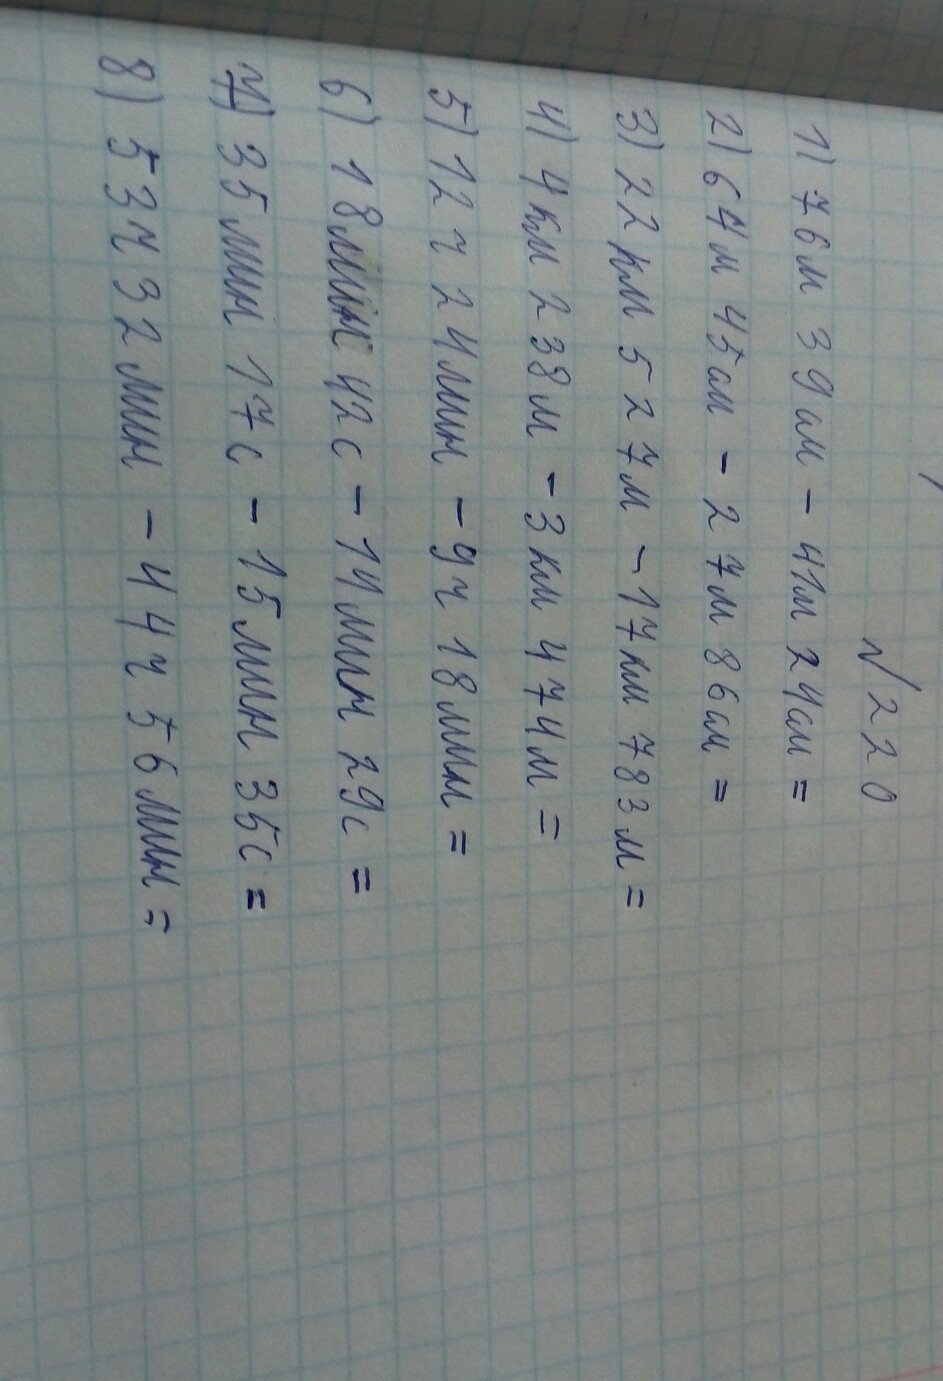 №220
1) 76м 39см - 41м 24см =
2) 64м 45см - 27м 86см =
3) 22 км 527м - 17км 783м =
4) 4км 238м - 3км 474м =
5) 12ч 24мин - 9ч 18мин =
6) 18мин 42с - 14мин 29с =
7) 35мин 17с - 15мин 35с =
8) 53ч 32мин - 44ч 56мин =